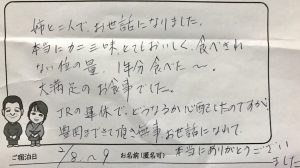 姉と二人で、お世話になりました。
本当にカニ三昧とてもおいしく、食べきれ
ない位の量、1年分食べた〜。
大満足のお食事でした。
JRの運休で、どうなるか心配したのですが
豊岡まできて頂き無事お世話になれて、
本当にありがとうござい
ました
ご宿泊日 2/8〜9 お名前(匿名可)